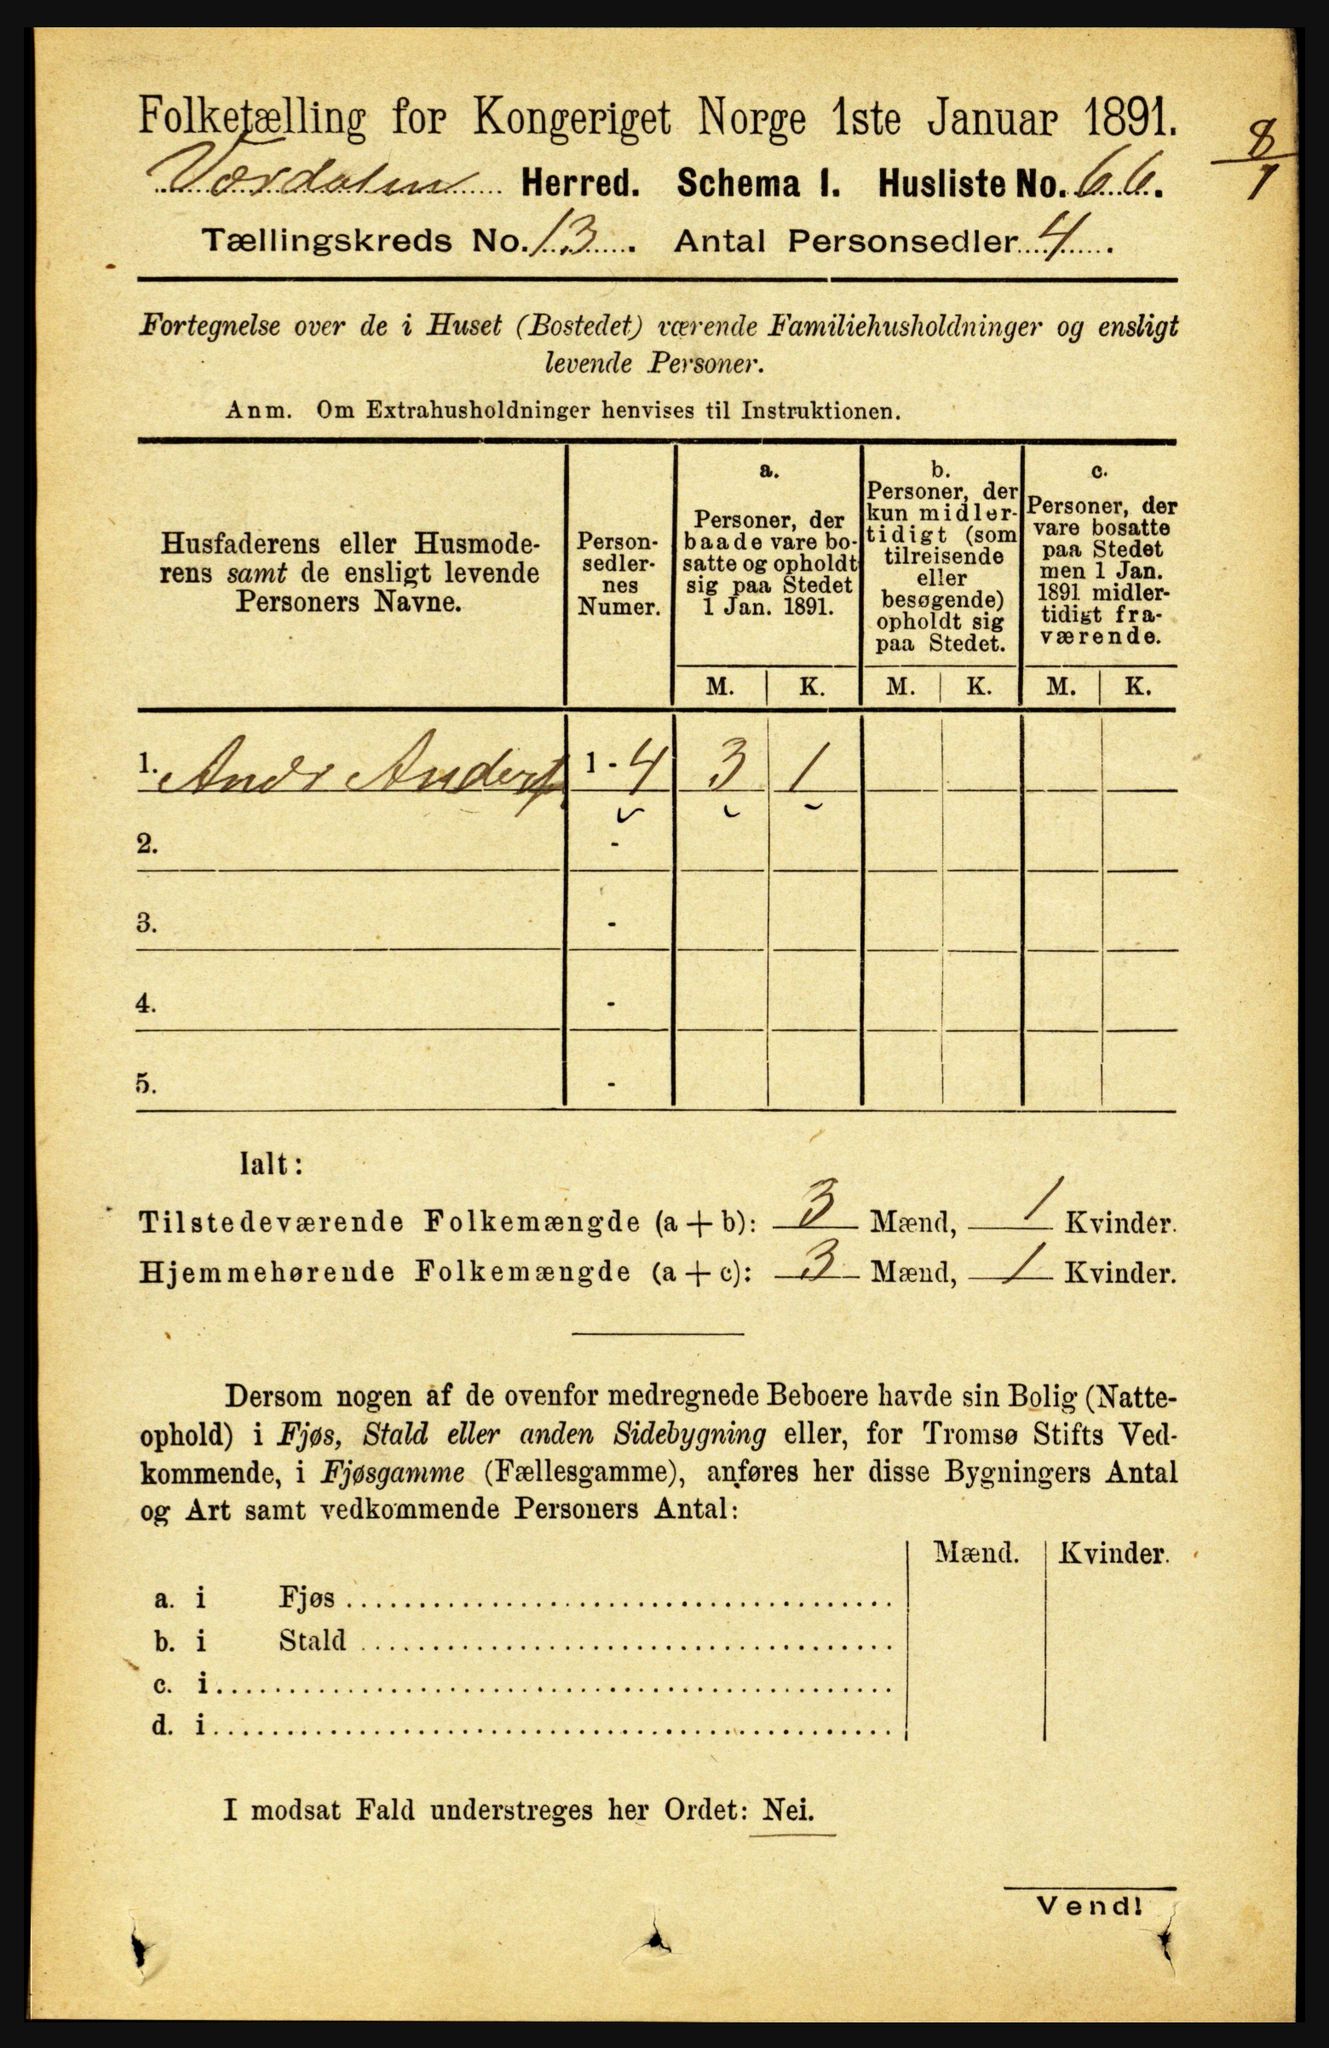 Folketælling for Kongeriget Norge 1ste Januar 1891.
8/7
Værdalen Herred. Schema I. Husliste No. 66.
Tællingskreds No. 13. Antal Personsedler 4.
Fortegnelse over de i Huset (Bostedet) værende Familiehusholdninger og ensligt
levende Personer.
Anm. Om Extrahusholdninger henvises til Instruktionen.
Husfaderens eller Husmode-
rens samt de ensligt levende
Personers Navne.
Person-
sedler-
nes
Numer.
a.
Personer, der
baade vare bo-
satte og opholdt
sig paa Stedet
1 Jan. 1891.
b.
Personer, der
kun midler-
tidigt (som
tilreisende
eller
besøgende)
opholdt sig
paa Stedet.
c.
Personer, der
vare bosatte
paa Stedet
men 1 Jan.
1891 midler-
tidigt fra-
værende.
M. K. M. K. M. K.
1. Andr Anders 1 - 4 3 1
2. -
3. -
4. -
5. -
Ialt:
Tilstedeværende Folkemængde (a + b): 3 Mænd, 1 Kvinder.
Hjemmehørende Folkemængde (a + c): 3 Mænd, 1 Kvinder.
Dersom nogen af de ovenfor medregnede Beboere havde sin Bolig (Natte-
ophold) i Fjøs, Stald eller anden Sidebygning eller, for Tromsø Stifts Ved-
kommende, i Fjøsgamme (Fællesgamme), anføres her disse Bygningers Antal
og Art samt vedkommende Personers Antal:
Mænd. Kvinder.
a. i Fjøs
b. i Stald
c. i
d. i
I modsat Fald understreges her Ordet: Nei.
Vend!